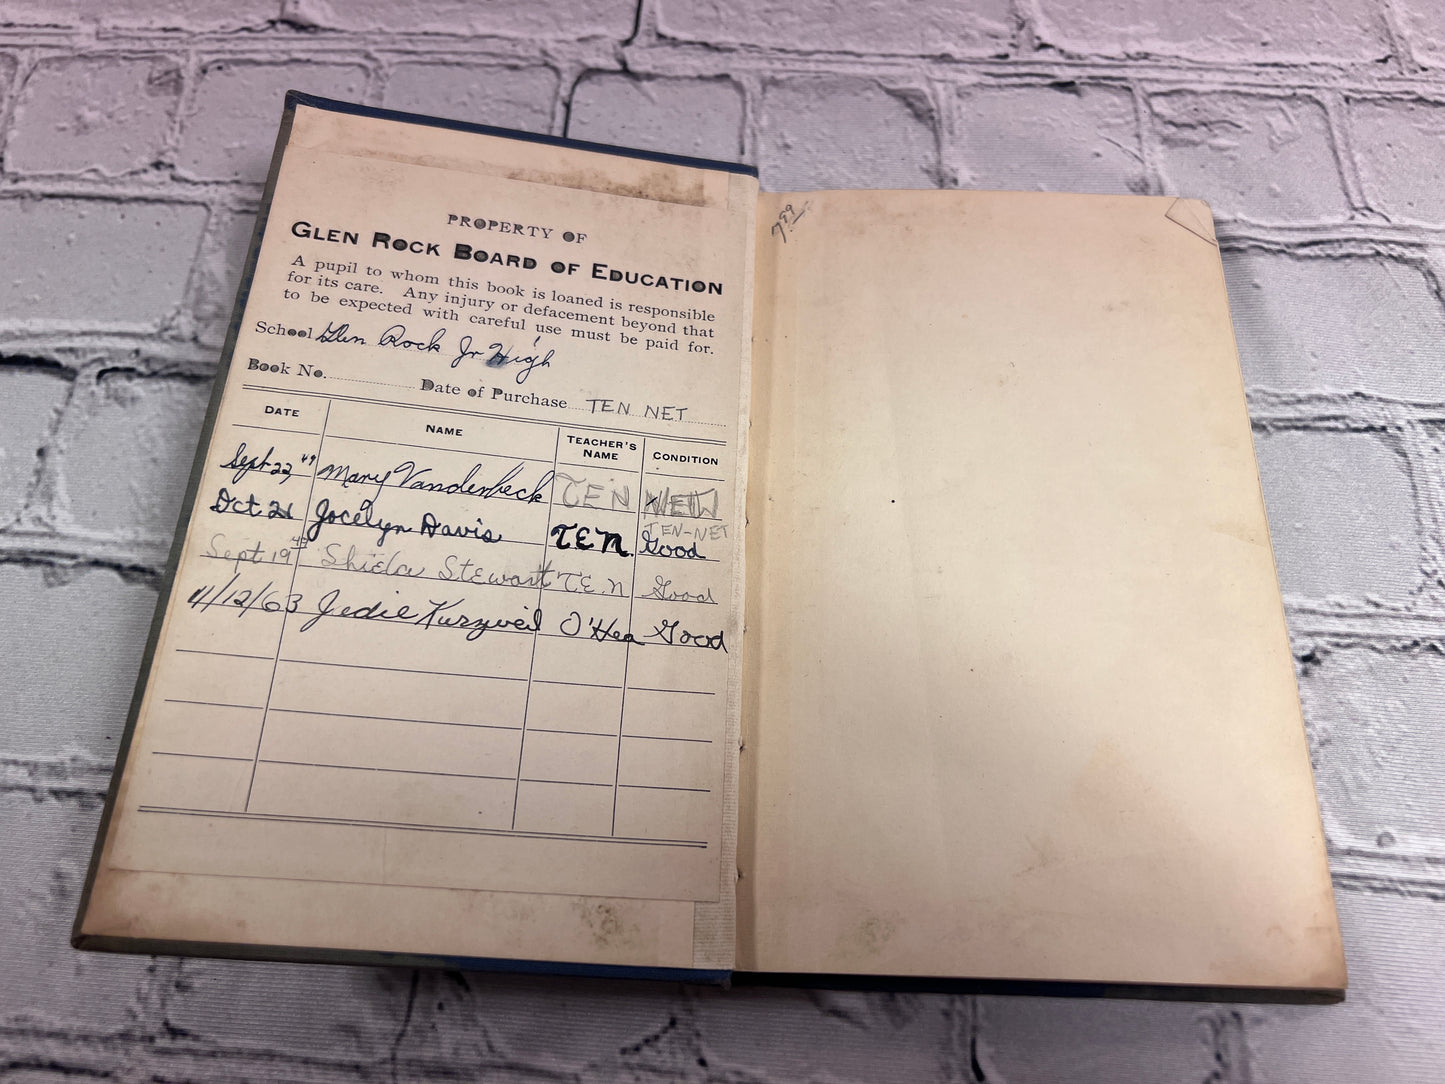 PROPERTY OF
GLEN ROCK BOARD OF EDUCATION
A pupil to whom this book is loaned is responsible
for its care. Any injury or defacement beyond that
to be expected with careful use must be paid for.
School Glen Rock Jr High
Book No. Date of Purchase TEN NET
DATE NAME TEACHER'S NAME CONDITION
Sept 22, 49 Mary Vanderbeck TEN NEW
TEN-NET
Oct 21 Jocelyn Davis TEN. Good
Sept 19 Shiela Stewart T.E.N Good
11/12/63 Jedie Kurzweil O'Hea Good
7.99